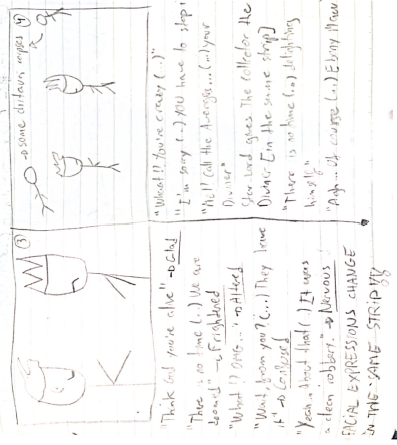 ③
"Thank God you're alive" → Glad
"There is no time (...) We are
doomed" → Frightened
"What!? OMG..." → Altered
"Want from you? (...) They leave
it" → Confused
"Yeah.. about that (...) It was
a clean robbery." → Nervous
FACIAL EXPRESSIONS CHANGE
IN THE SAME STRIP
④
→ some distant
"What!? You're crazy (...)"
"I'm sorry (...) you have to stop
"No!! Call the Avengers... (...) your
Star Lord gives the Collector the
[in the same strip]
"There is no time (...)
"Argh... Of course (...) Ebony Maw